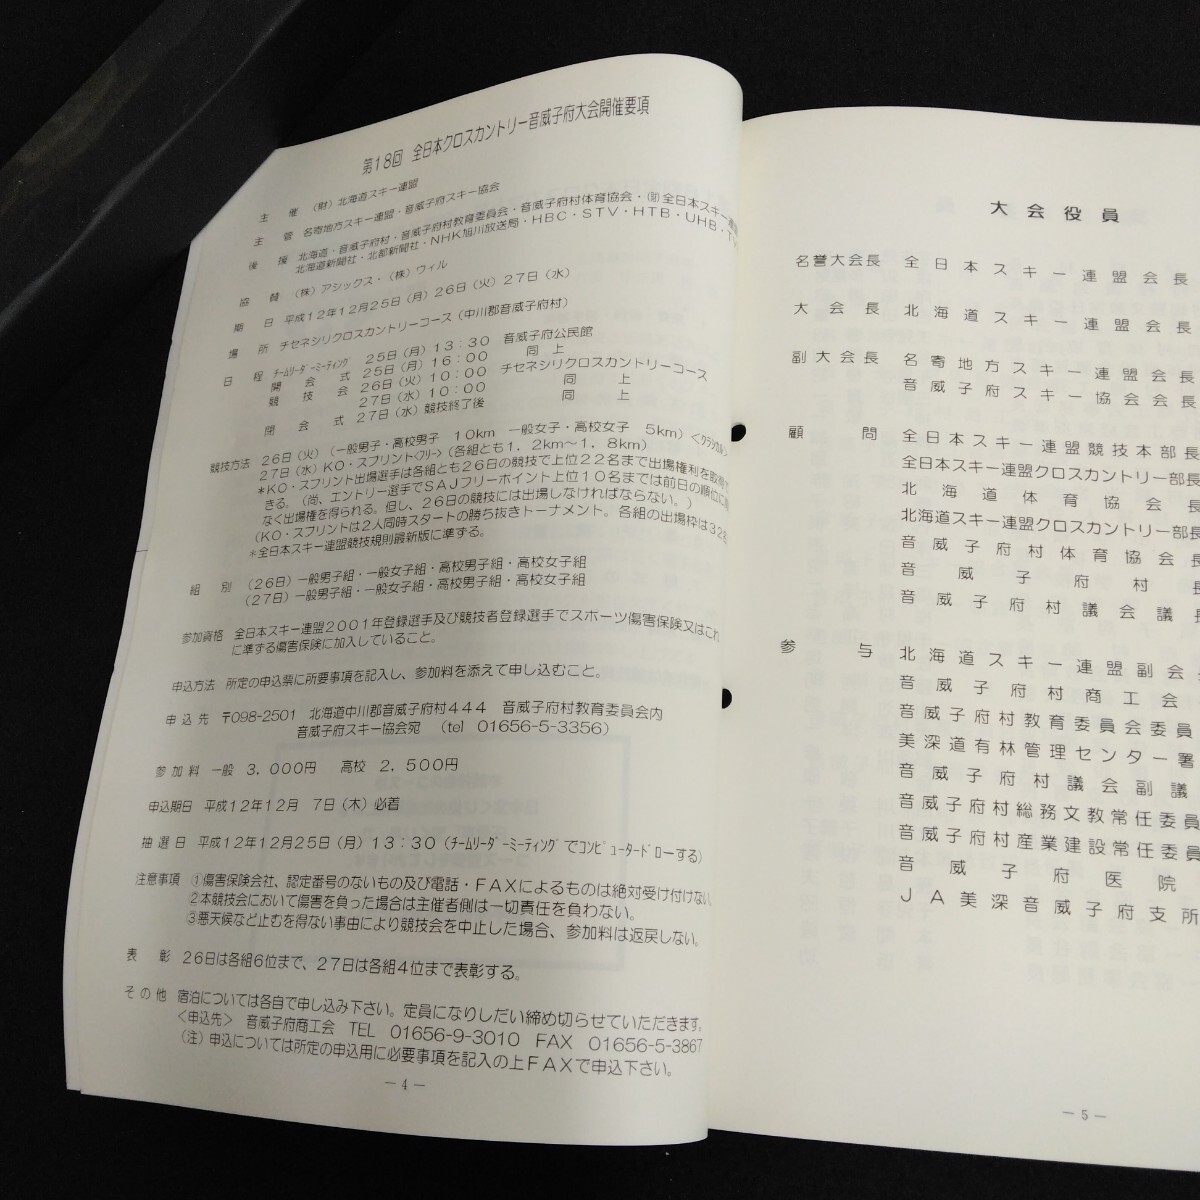 第18回 全日本クロスカントリー音威子府大会開催要項
主 催 (財)北海道スキー連盟
主 管 名寄地方スキー連盟・音威子府スキー協会
後 援 北海道・音威子府村・音威子府村教育委員会・音威子府村体育協会・(財)全日本スキー連盟
北海道新聞社・北都新聞社・NHK旭川放送局・HBC・STV・HTB・UHB・TV
協 賛 (株)アシックス・(株)ウィル
期 日 平成12年12月25日(月)26日(火)27日(水)
場 所 チセネシリクロスカントリーコース(中川郡音威子府村)
日 程 チームリーダーミーティング 25日(月)13:30 音威子府公民館
開 会 式 25日(月)16:00 同 上
競 技 会 26日(火)10:00 チセネシリクロスカントリーコース
27日(水)10:00 同 上
閉 会 式 27日(水)競技終了後 同 上
競技方法 26日(火)(一般男子・高校男子 10km 一般女子・高校女子 5km)<クラシカル>
27日(水)KO・スプリント<フリー>(各組とも1,2km~1,8km)
*KO・スプリント出場選手は各組とも26日の競技で上位22名まで出場権利を取得で
きる。(尚、エントリー選手でSAJフリーポイント上位10名までは前日の順位に関
なく出場権を得られる。但し、26日の競技には出場しなければならない。)
(KO・スプリントは2人同時スタートの勝ち抜きトーナメント。各組の出場枠は32名
*全日本スキー連盟競技規則最新版に準ずる。
組 別 (26日)一般男子組・一般女子組・高校男子組・高校女子組
(27日)一般男子組・一般女子組・高校男子組・高校女子組
参加資格 全日本スキー連盟2001年登録選手及び競技者登録選手でスポーツ傷害保険又はこれ
に準ずる傷害保険に加入していること。
申込方法 所定の申込票に所要事項を記入し、参加料を添えて申し込むこと。
申 込 先 〒098-2501 北海道中川郡音威子府村444 音威子府村教育委員会内
音威子府スキー協会宛 (tel 01656-5-3356)
参 加 料 一般 3,000円 高校 2,500円
申込期日 平成12年12月 7日(木)必着
抽 選 日 平成12年12月25日(月)13:30(チームリーダーミーティングでコンピュータードローする)
注意事項 ①傷害保険会社、認定番号のないもの及び電話・FAXによるものは絶対受け付けない。
②本競技会において傷害を負った場合は主催者側は一切責任を負わない。
③悪天候など止むを得ない事由により競技会を中止した場合、参加料は返戻しない。
表 彰 26日は各組6位まで、27日は各組4位まで表彰する。
そ の 他 宿泊については各自で申し込み下さい。定員になりしだい締め切らせていただきます。
<申込先> 音威子府商工会 TEL 01656-9-3010 FAX 01656-5-3867
(注)申込については所定の申込用に必要事項を記入の上FAXで申込下さい。
- 4 -
大 会 役 員
名誉大会長 全日本スキー連盟会長
大 会 長 北海道スキー連盟会長
副大会長 名寄地方スキー連盟会長
音威子府スキー協会会長
顧 問 全日本スキー連盟競技本部長
全日本スキー連盟クロスカントリー部長
北海道体育協会長
北海道スキー連盟クロスカントリー部長
音威子府村体育協会長
音威子府村長
音威子府村議会議長
参 与 北海道スキー連盟副会長
音威子府村商工会
音威子府村教育委員会委員
美深道有林管理センター署
音威子府村議会副議
音威子府村総務文教常任委員
音威子府村産業建設常任委員
音威子府医院
JA美深音威子府支所
- 5 -